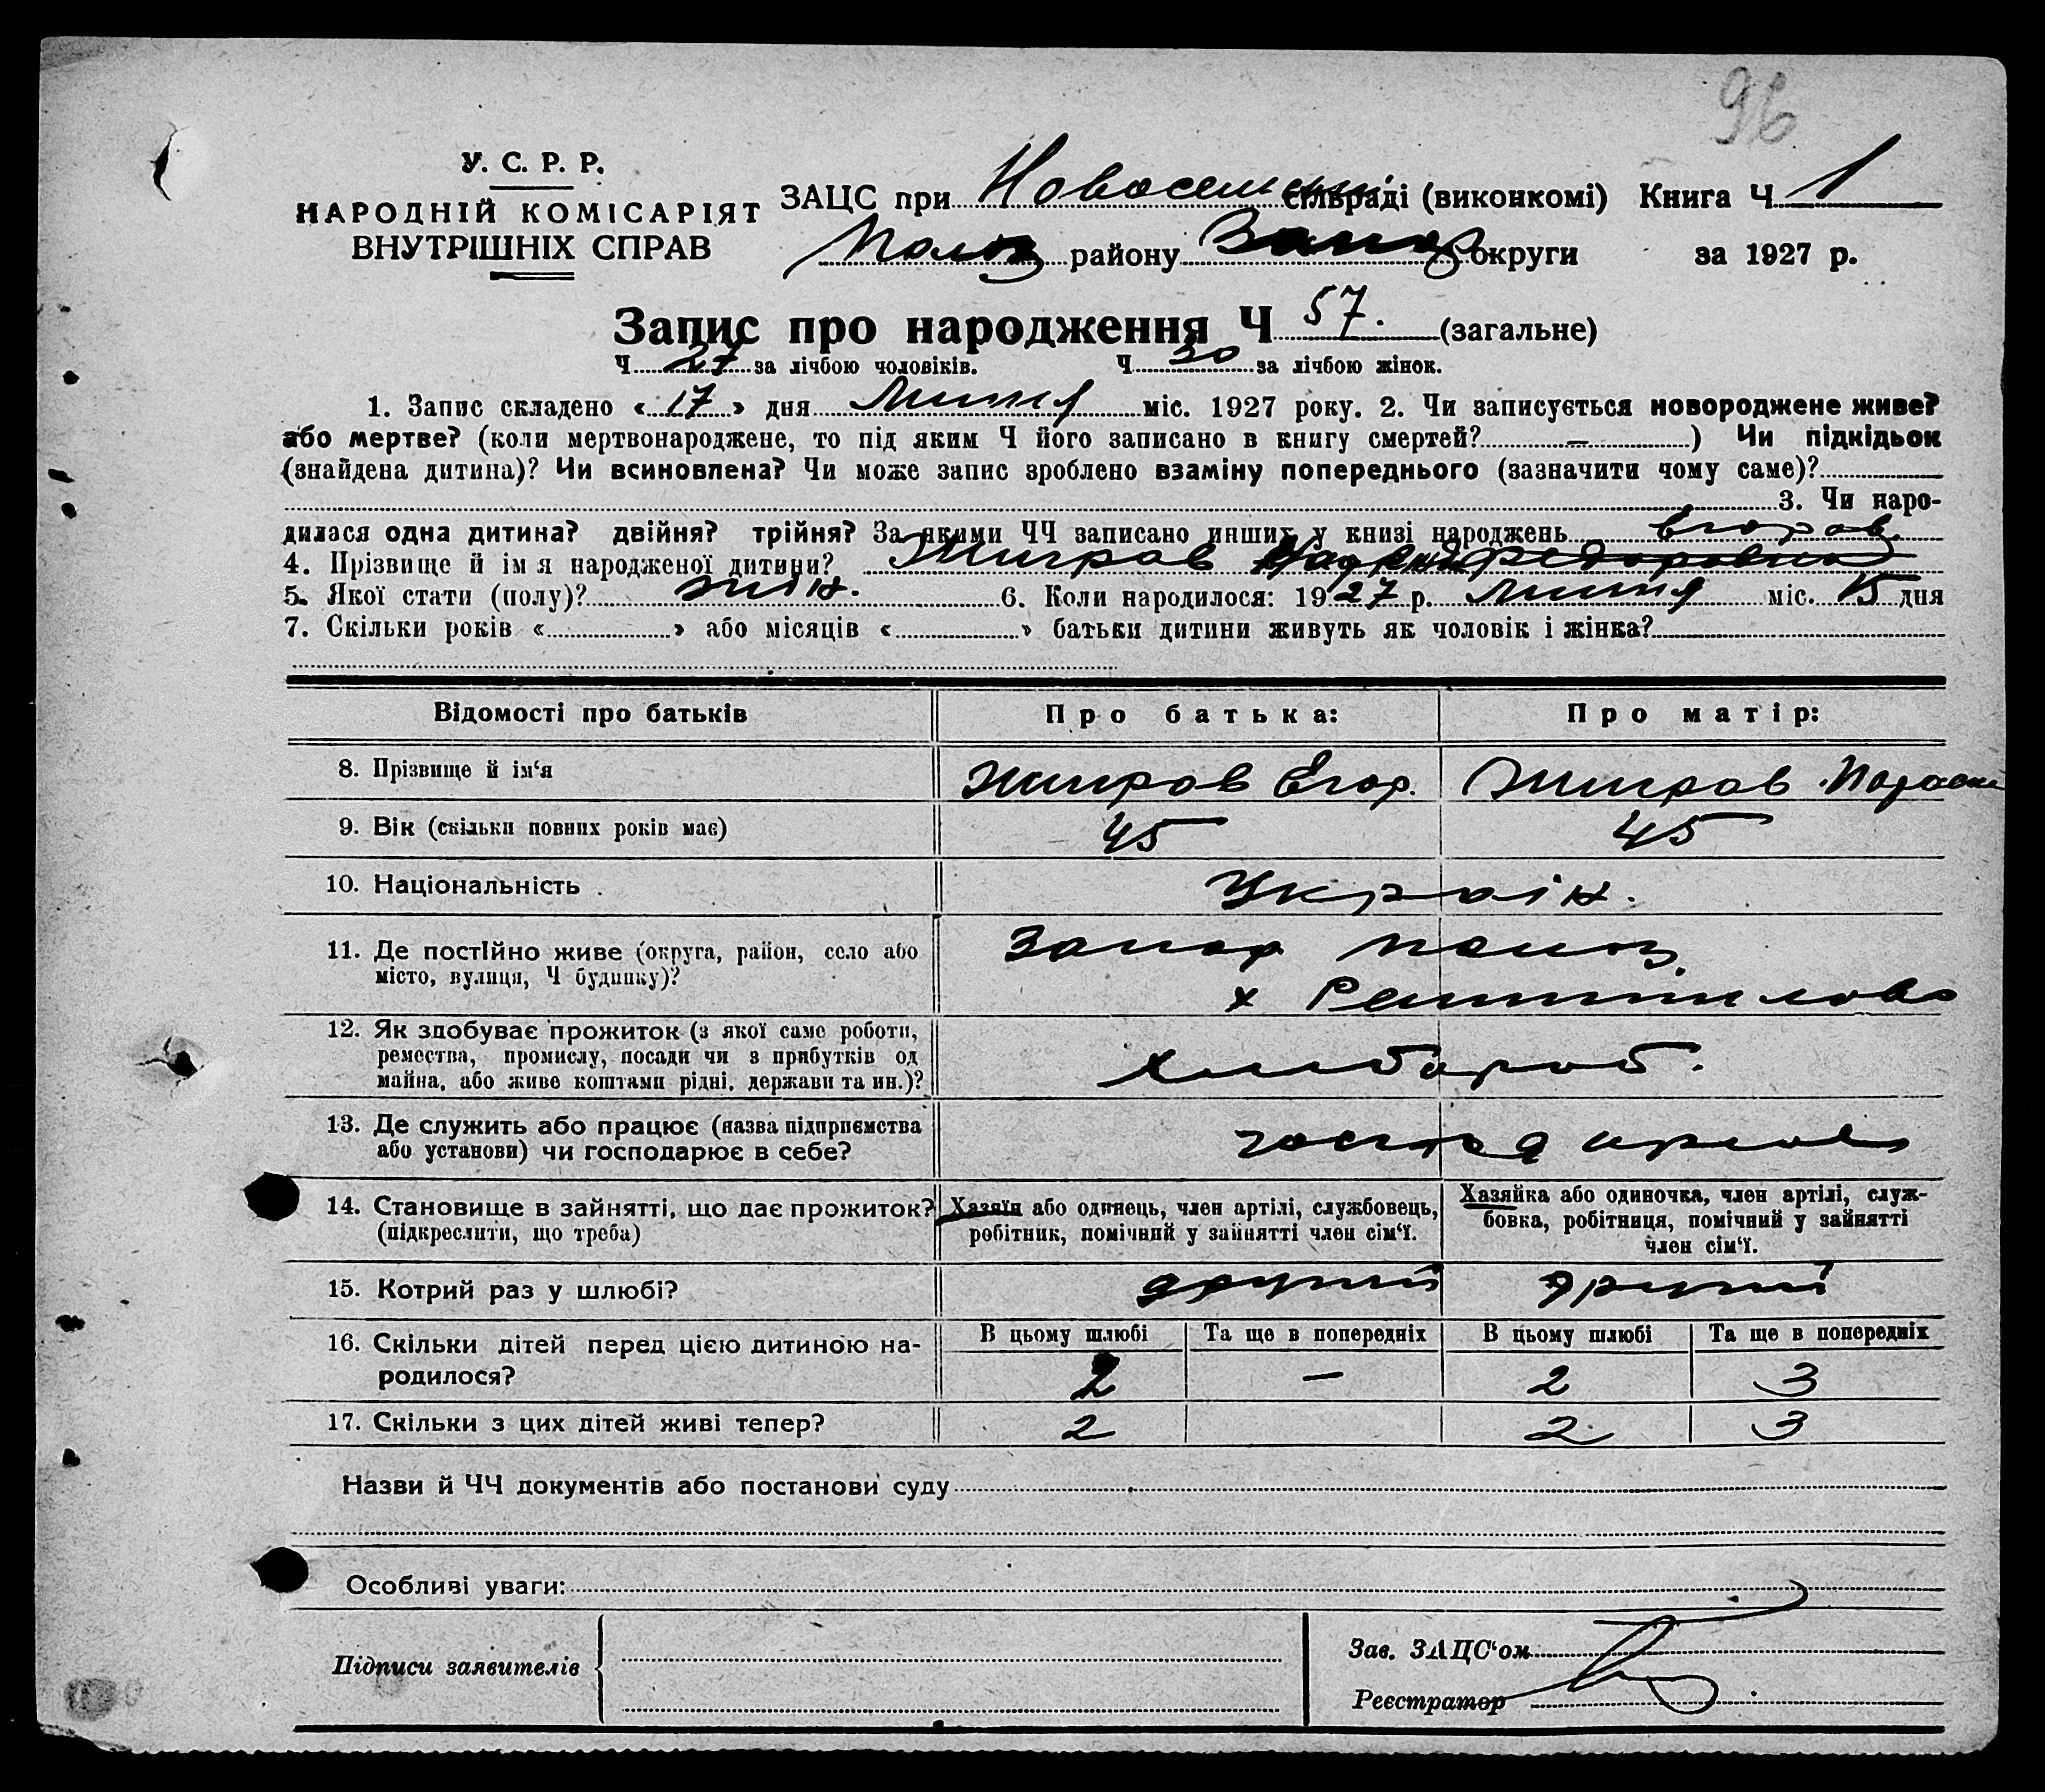 96
У. С. Р. Р.
НАРОДНІЙ КОМІСАРІЯТ
ВНУТРІШНІХ СПРАВ
ЗАЦС при сільраді (виконкомі) Книга Ч 1
Полог району Запор округи за 1927 р.
Запис про народження Ч 57. (загальне)
Ч 27 за лічбою чоловіків. Ч 30 за лічбою жінок.
1. Запис складено « 17 » дня Липня міс. 1927 року. 2. Чи записується новороджене живе?
або мертве? (коли мертвонароджене, то під яким Ч його записано в книгу смертей? – ) Чи підкідьок
(знайдена дитина)? Чи всиновлена? Чи може запис зроблено взаміну попереднього (зазначити чому саме)?
3. Чи наро-
дилася одна дитина? двійня? трійня? За якими ЧЧ записано инших у книзі народжень
4. Прізвище й імя народженої дитини? Жигров Федоровна
5. Якої стати (полу)? жін. 6. Коли народилося: 1927 р. Липня міс. 15 дня
7. Скільки років « » або місяців « » батьки дитини живуть як чоловік і жінка?
Відомості про батьків
Про батька:
Про матір:
8. Прізвище й ім‘я Жигров Егор. Жигров
9. Вік (скільки повних років має) 45 45
10. Національність Україн.
11. Де постійно живе (округа, район, село або
місто, вулиця, Ч будинку)?
Запор Полог.
х
12. Як здобуває прожиток (з якої само роботи,
ремества, промислу, посади чи з прибутків од
майна, або живе коштами рідні, держави та ин.)?
хлибороб.
13. Де служить або працює (назва підприємства
або установи) чи господарює в себе?
14. Становище в зайнятті, що дає прожиток?
(підкреслити, що треба)
Хазяїн або одинець, член артілі, службовець,
робітник, помічний у зайнятті член сім‘ї.
Хазяйка або одиночка, член артілі, служ-
бовка, робітниця, помічний у зайнятті
член сім‘ї.
15. Котрий раз у шлюбі? другий другий
16. Скільки дітей перед цією дитиною на-
родилося?
В цьому шлюбі Та ще в попередніх В цьому шлюбі Та ще в попередніх
2 – 2 3
17. Скільки з цих дітей живі тепер? 2 2 3
Назви й ЧЧ документів або постанови суду
Особливі уваги:
Підписи заявителів
Зав. ЗАЦС‘ом
Реєстратор